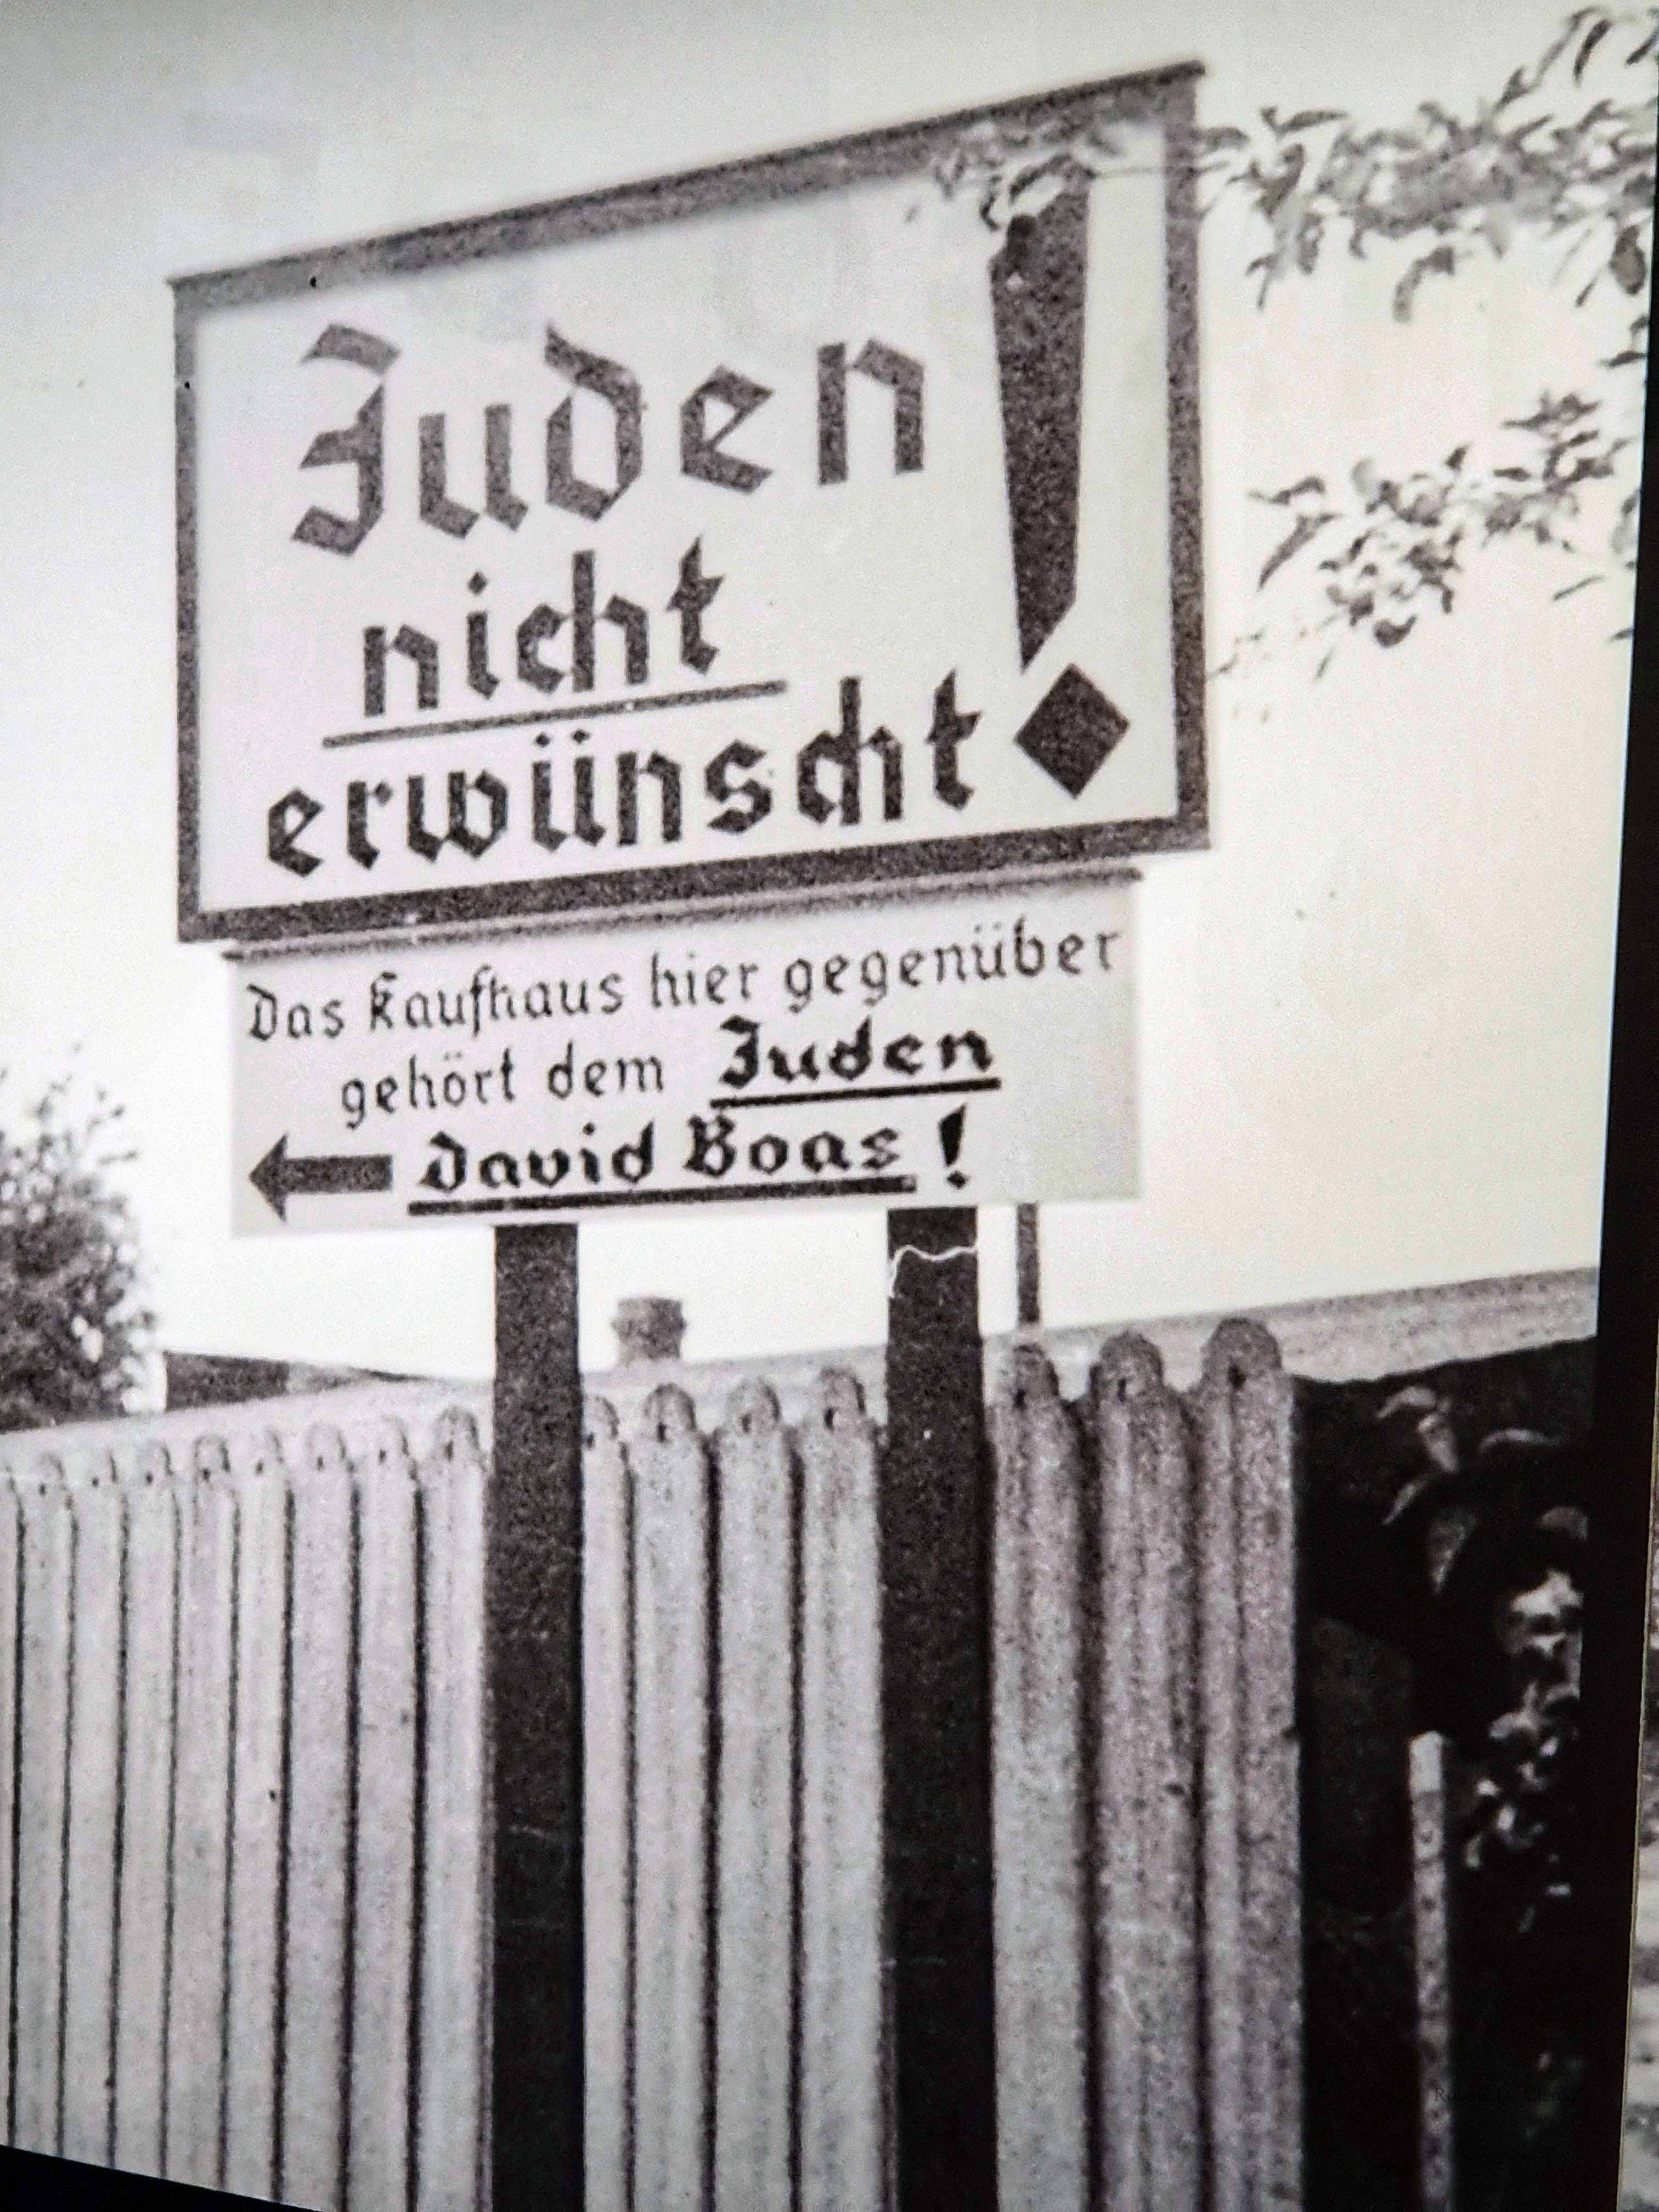 Juden !
nicht
erwünscht
Das Kaufhaus hier gegenüber
gehört dem Juden
← David Boas !